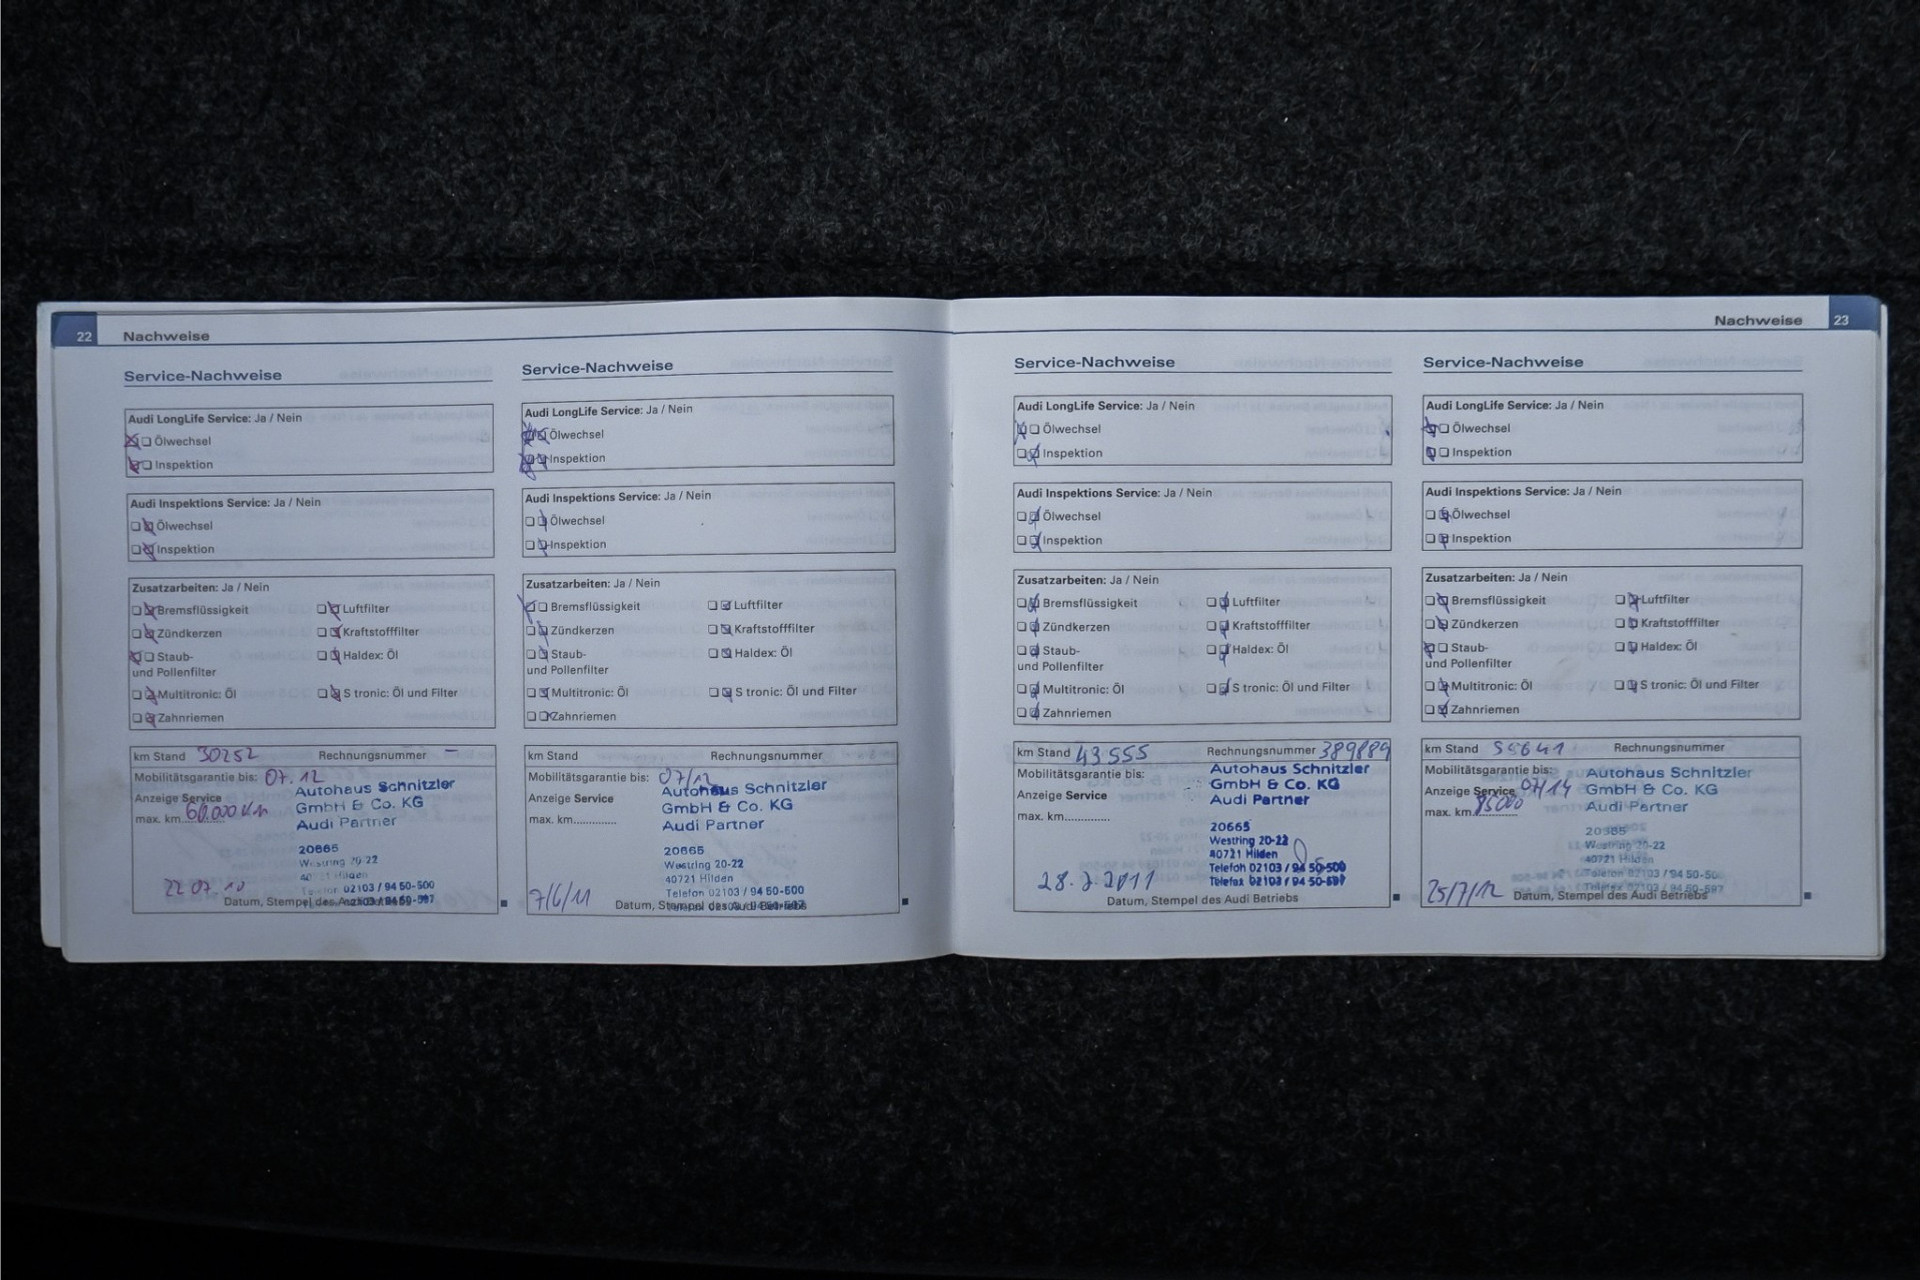 22 Nachweise
Service-Nachweise
Audi LongLife Service: Ja / Nein
Ölwechsel
Inspektion
Audi Inspektions Service: Ja / Nein
Ölwechsel
Inspektion
Zusatzarbeiten: Ja / Nein
Bremsflüssigkeit Luftfilter
Zündkerzen Kraftstofffilter
Staub- Haldex: Öl
und Pollenfilter
Multitronic: Öl S tronic: Öl und Filter
Zahnriemen
km Stand 30252 Rechnungsnummer –
Mobilitätsgarantie bis: 07.12
Anzeige Service
max. km 60.000 km
Autohaus Schnitzler
GmbH & Co. KG
Audi Partner
20665
Westring 20-22
Hilden
02103 / 94 50-500
22 07. 10
Datum, Stempel des Audi Betriebs
Service-Nachweise
Audi LongLife Service: Ja / Nein
Ölwechsel
Inspektion
Audi Inspektions Service: Ja / Nein
Ölwechsel
Inspektion
Zusatzarbeiten: Ja / Nein
Bremsflüssigkeit Luftfilter
Zündkerzen Kraftstofffilter
Staub- Haldex: Öl
und Pollenfilter
Multitronic: Öl S tronic: Öl und Filter
Zahnriemen
km Stand Rechnungsnummer
Mobilitätsgarantie bis: 07/12
Anzeige Service
max. km.............
Autohaus Schnitzler
GmbH & Co. KG
Audi Partner
20665
Westring 20-22
40721 Hilden
Telefon 02103 / 94 50-500
7/6/11
Datum, Stempel des Audi Betriebs
Nachweise 23
Service-Nachweise
Audi LongLife Service: Ja / Nein
Ölwechsel
Inspektion
Audi Inspektions Service: Ja / Nein
Ölwechsel
Inspektion
Zusatzarbeiten: Ja / Nein
Bremsflüssigkeit Luftfilter
Zündkerzen Kraftstofffilter
Staub- Haldex: Öl
und Pollenfilter
Multitronic: Öl S tronic: Öl und Filter
Zahnriemen
km Stand 43555 Rechnungsnummer 389889
Mobilitätsgarantie bis:
Anzeige Service
max. km.............
Autohaus Schnitzler
GmbH & Co. KG
Audi Partner
20665
Westring 20-22
40721 Hilden
Telefon 02103 / 94 50-500
Telefax 02103 / 94 50-597
28.7.2011
Datum, Stempel des Audi Betriebs
Service-Nachweise
Audi LongLife Service: Ja / Nein
Ölwechsel
Inspektion
Audi Inspektions Service: Ja / Nein
Ölwechsel
Inspektion
Zusatzarbeiten: Ja / Nein
Bremsflüssigkeit Luftfilter
Zündkerzen Kraftstofffilter
Staub- Haldex: Öl
und Pollenfilter
Multitronic: Öl S tronic: Öl und Filter
Zahnriemen
km Stand 55641 Rechnungsnummer
Mobilitätsgarantie bis:
Anzeige Service 07/14
max. km 85000
Autohaus Schnitzler
GmbH & Co. KG
Audi Partner
Westring 20-22
40721 Hilden
Telefon 02103 / 94 50-500
Telefax 02103 / 94 50-597
25/7/12
Datum, Stempel des Audi Betriebs